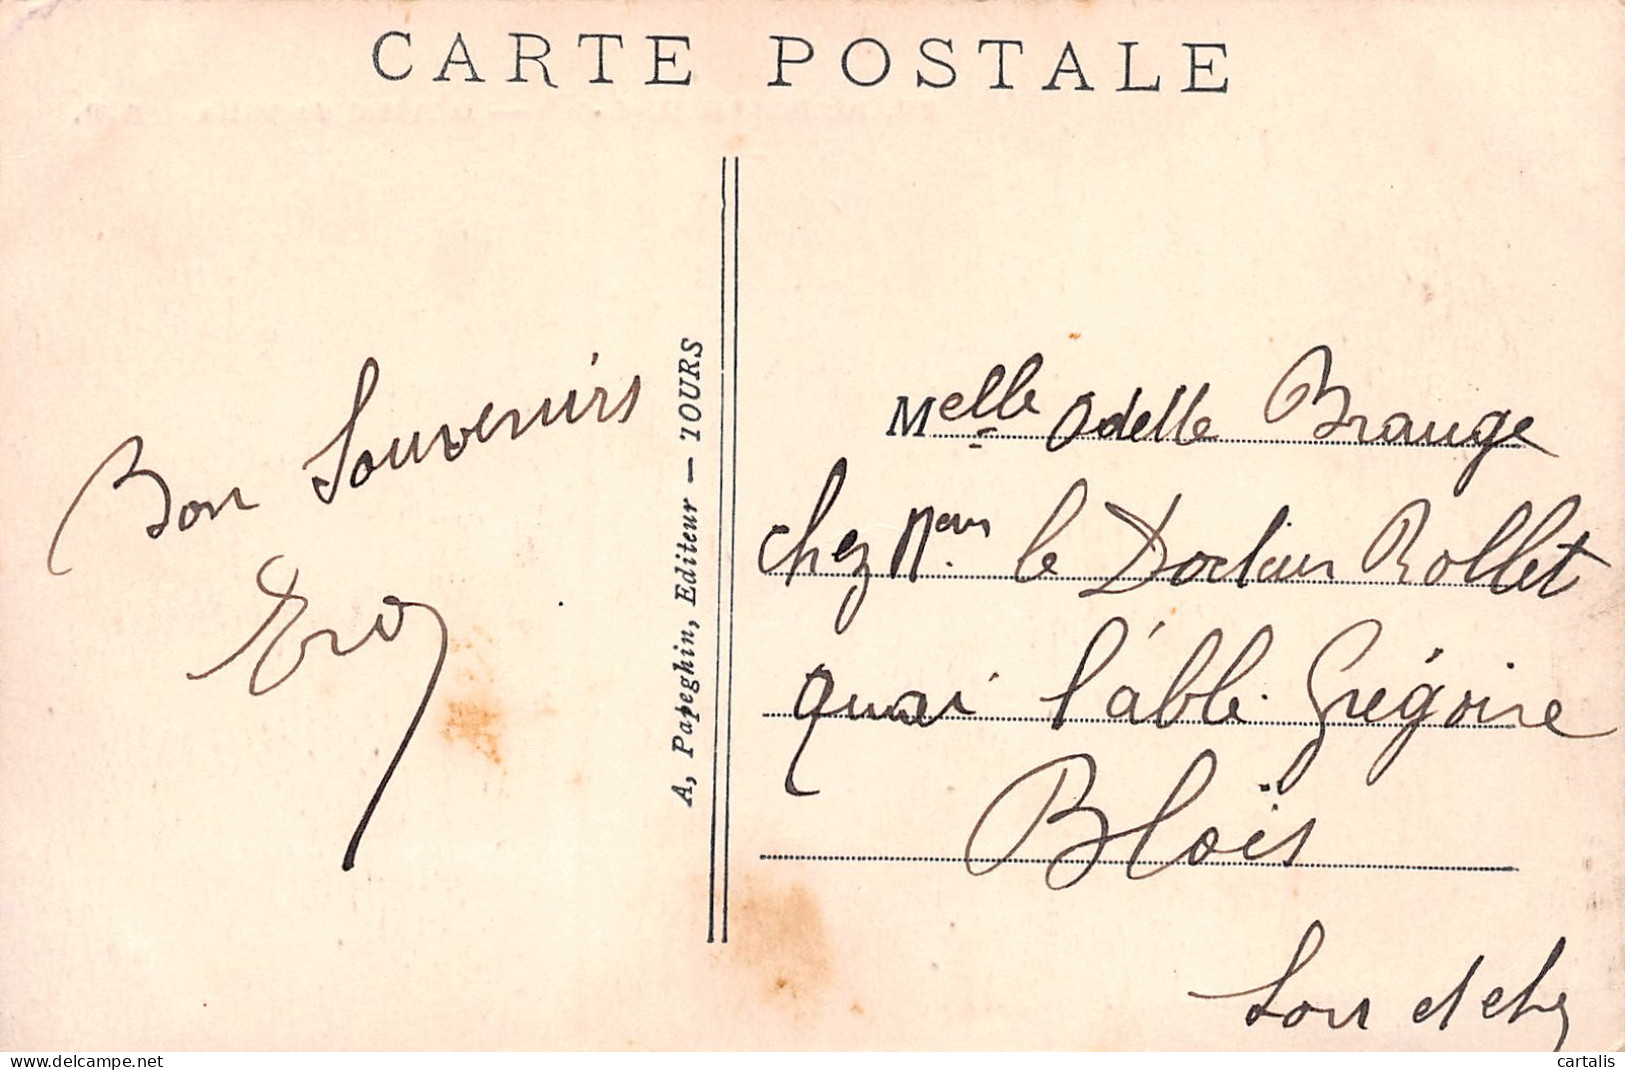 CARTE POSTALE
Bon Souvenirs
A, Papeghin, Editeur — TOURS
Melle Odelle Brauge
chez Mr le Docteur Rollet
quai l'abbé Grégoire
Blois
Loir et cher
cartalis